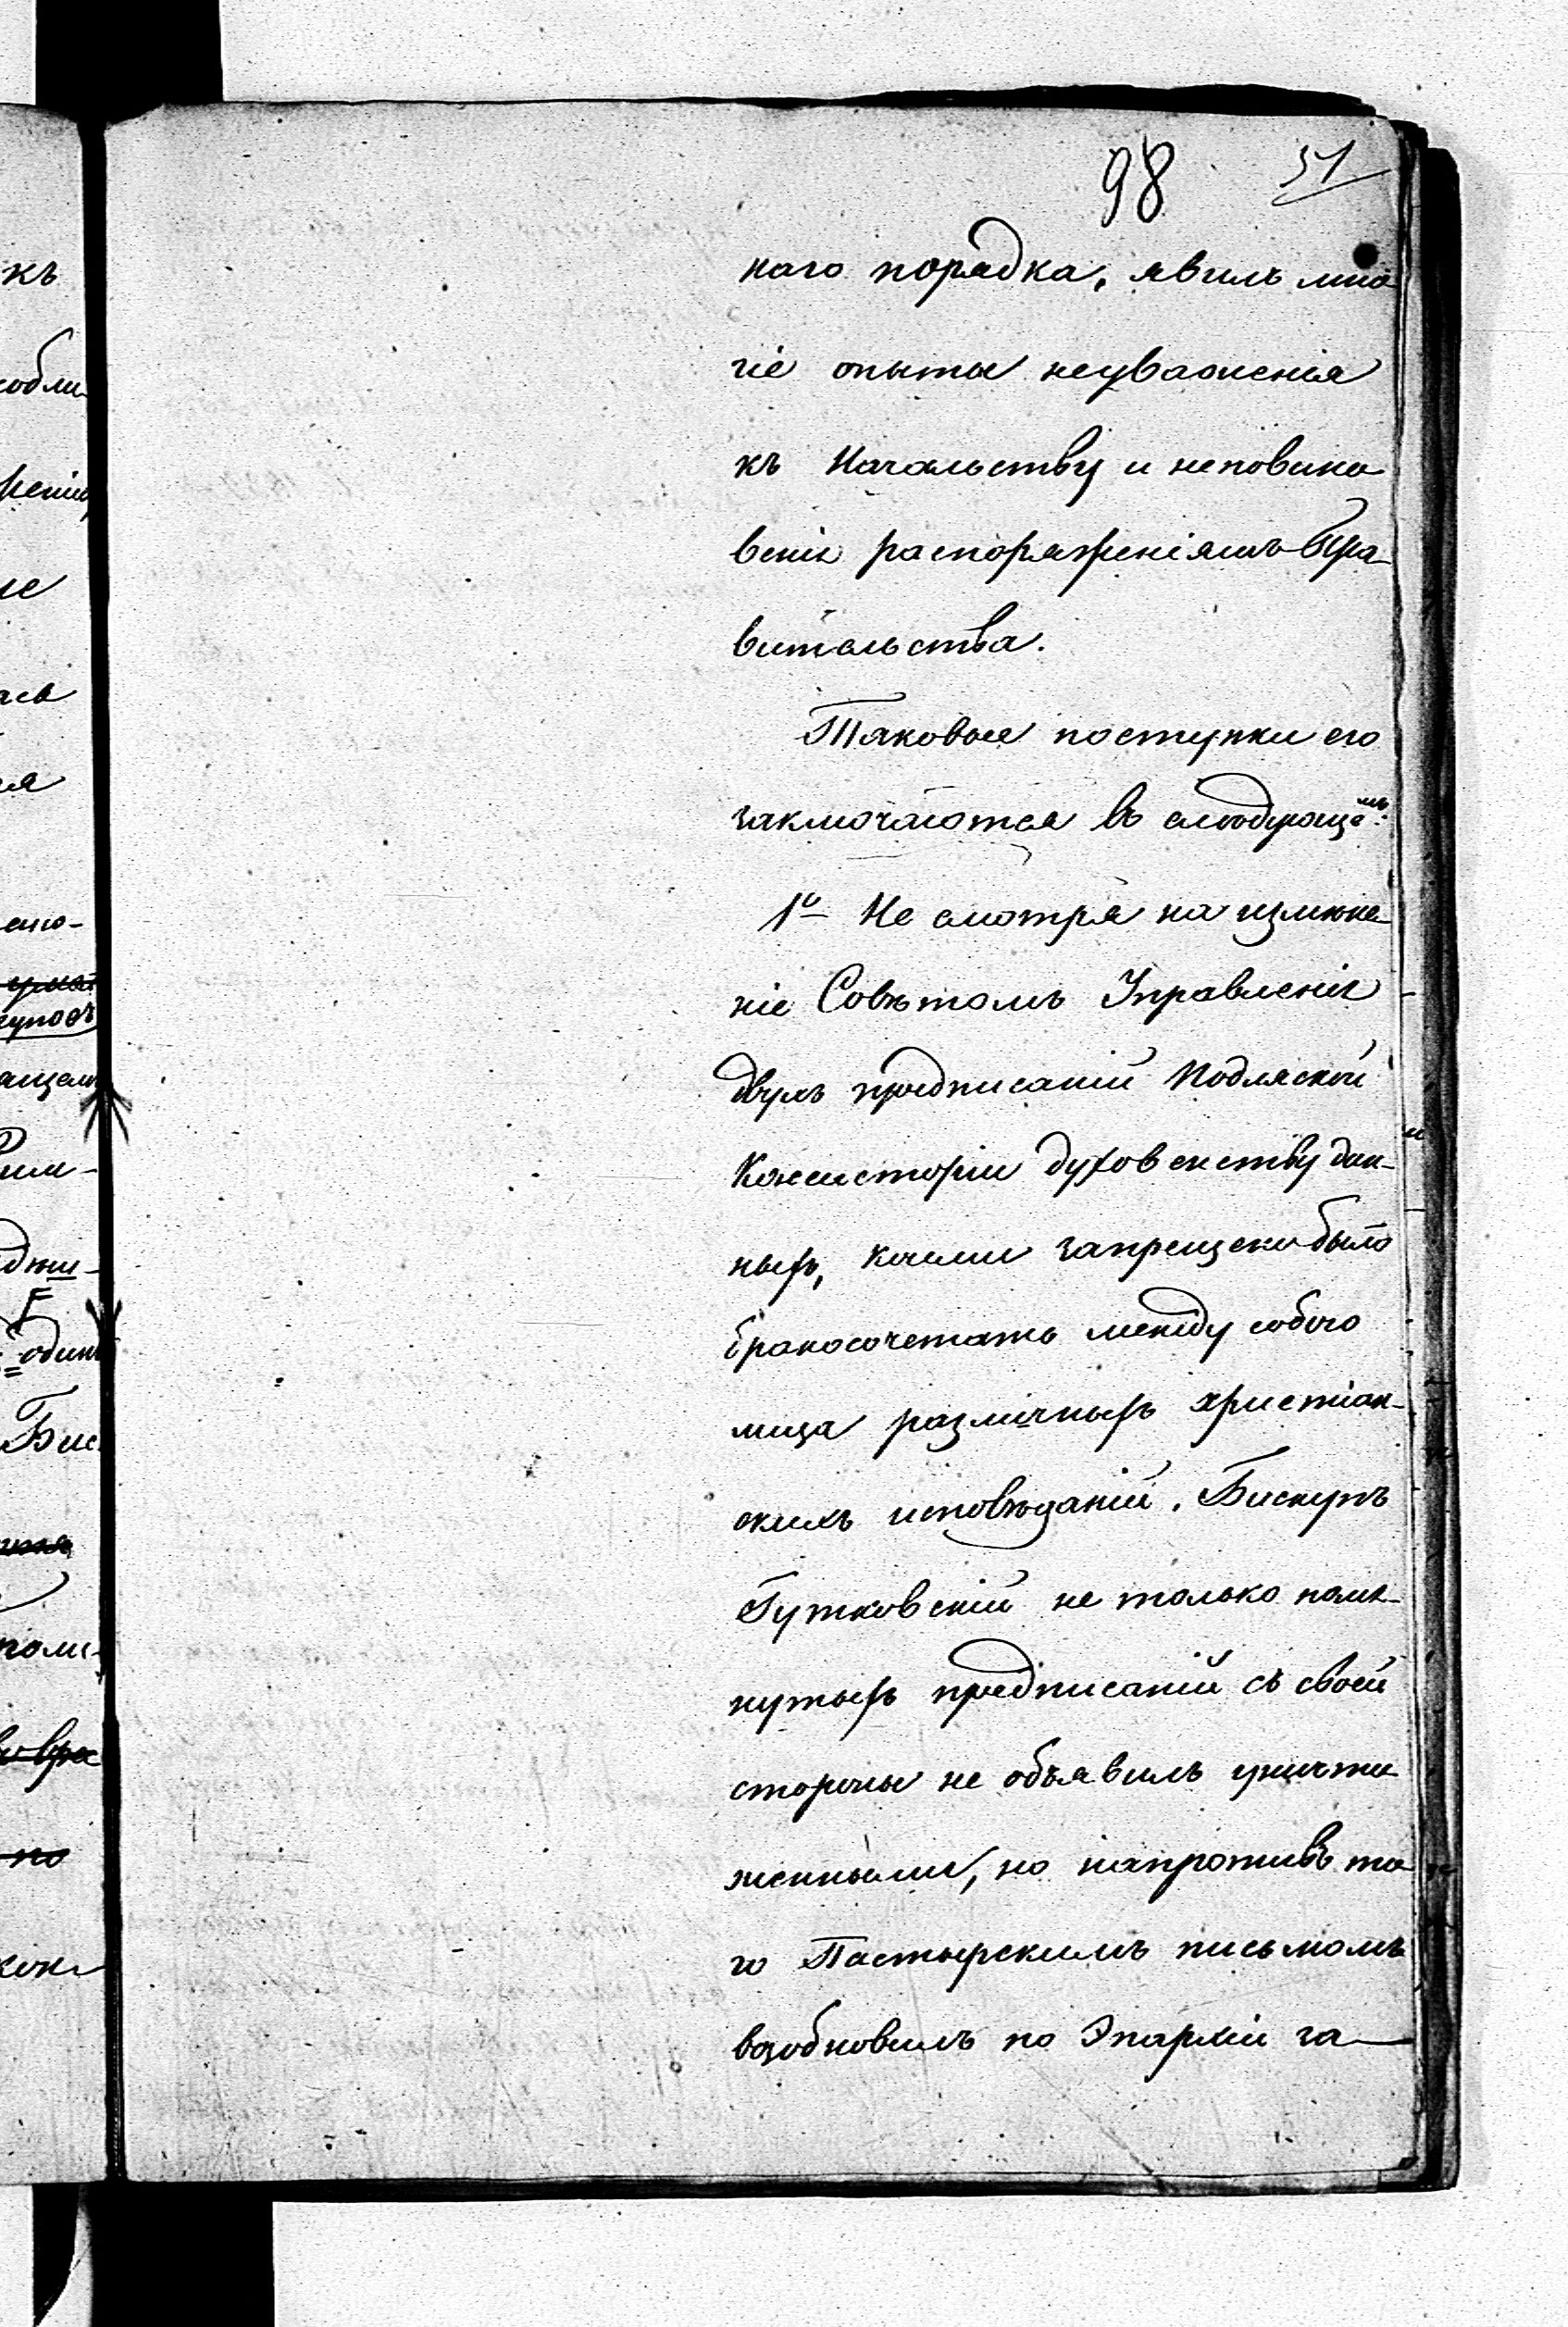 98 51
наго порядка, явилъ мно
гіе опыты неуваженія
къ Начальству и неповино
венія распоряженіямъ Пра
вительства.
Таковые поступки его
заключаются въ слѣдующемъ:
1º Не смотря на измѣне
ніе Совѣтомъ Управленія
двухъ предписаній Подляской
Консисторіи духовенству дан-
ныхъ, коими запрещено было
бракосочетать между собою
лица различныхъ христіан-
скихъ исповѣданій. Бискупъ
Гутковскій не только помя-
нутыхъ предписаній съ своей
стороны не объявилъ уничто
женными, но напротивъ то
го Пастырскимъ письмомъ
возобновилъ по Эпархіи за
къ